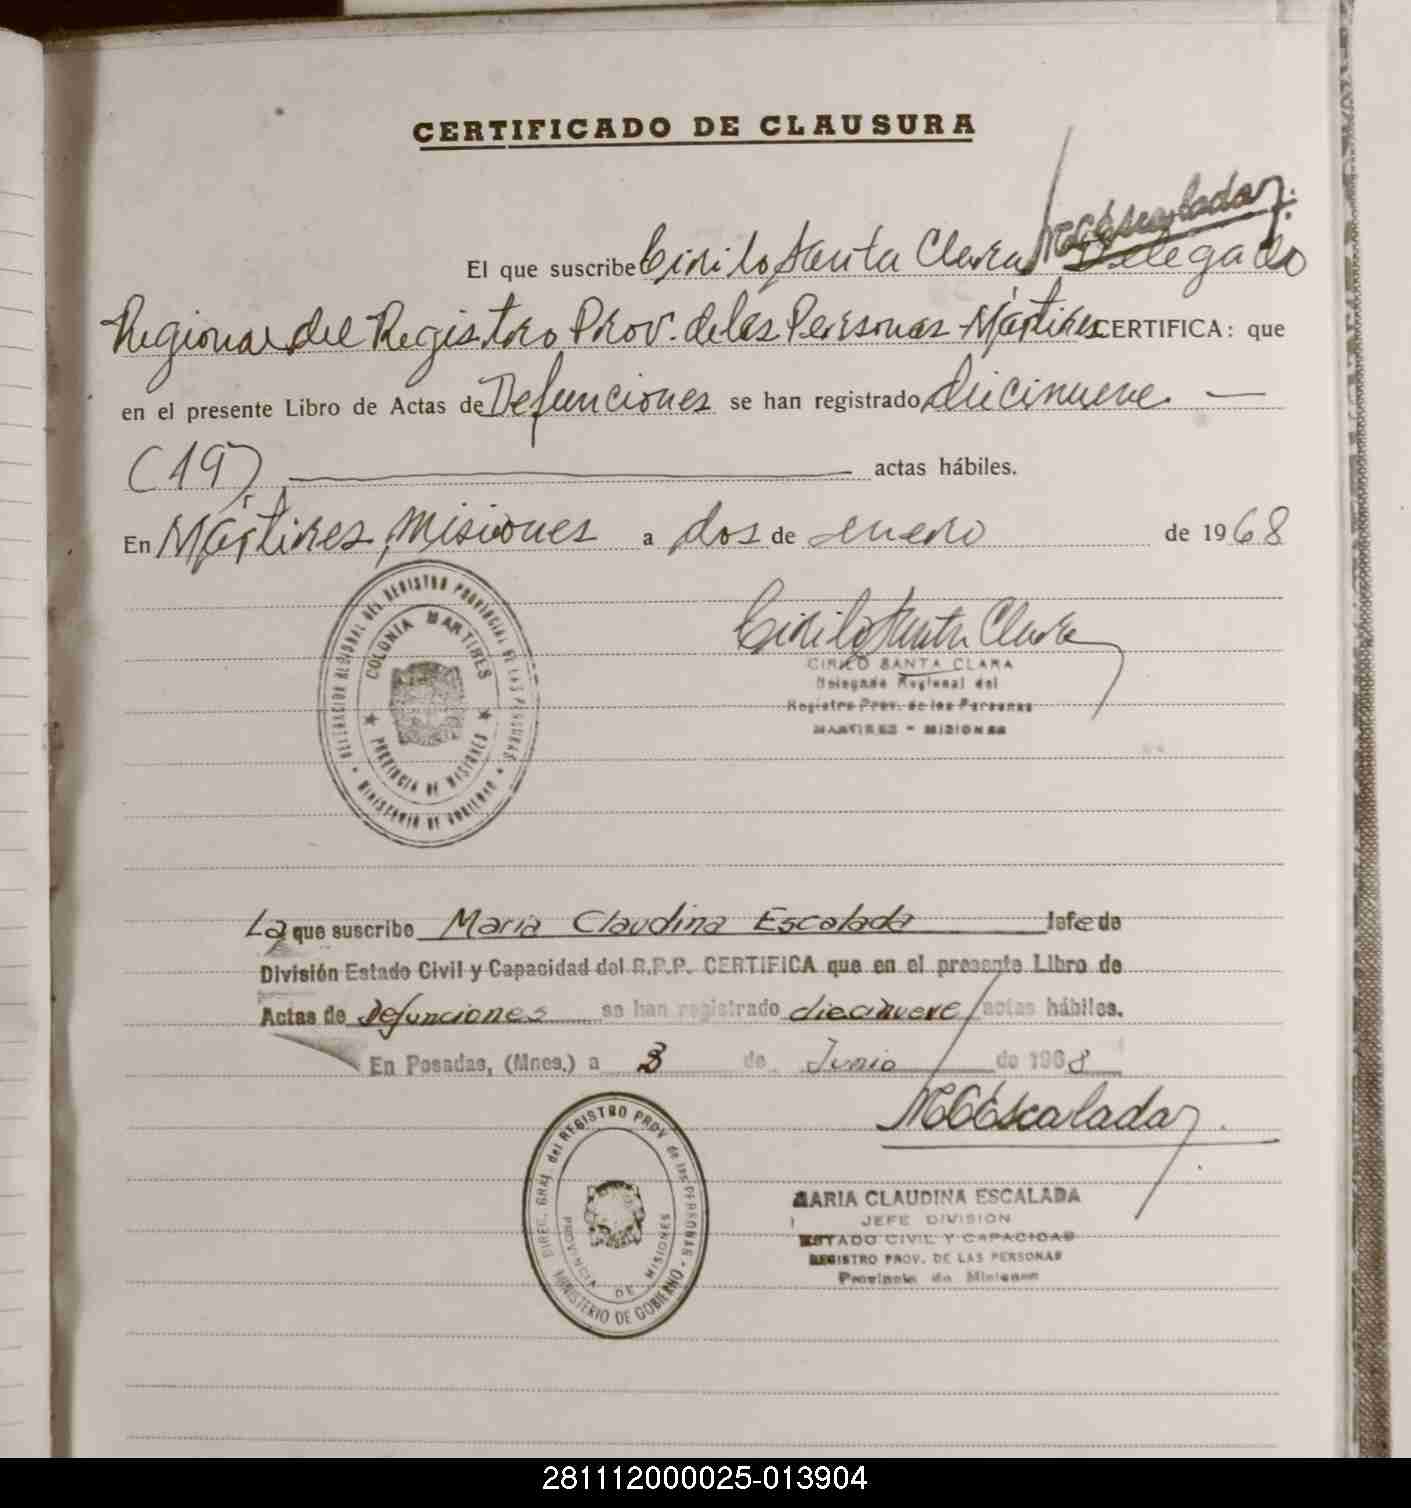 CERTIFICADO DE CLAUSURA
MCEscalada
El que suscribe Cirilo Santa Clara Delegado
Regional del Registro Prov. de las Personas Mártires CERTIFICA: que
en el presente Libro de Actas de Defunciones se han registrado diecinueve —
(19) actas hábiles.
En Mártires, Misiones a dos de enero de 1968
Cirilo Santa Clara
CIRILO SANTA CLARA
Delegado Regional del
Registro Prov. de las Personas
MARTIRES - MISIONES
DELEGACION REGIONAL DEL REGISTRO PROVINCIAL DE LAS PERSONAS
MINISTERIO DE GOBIERNO
COLONIA MARTIRES
PROVINCIA DE MISIONES
La que suscribe Maria Claudina Escalada Jefe de
División Estado Civil y Capacidad del R.P.P. CERTIFICA que en el presente Libro de
Actas de Defunciones se han registrado diecinueve actas hábiles.
En Posadas, (Mnes.) a 3 de Junio de 1968
MCEscalada
DIREC. GRAL. del REGISTRO PROV. de las PERSONAS
MINISTERIO DE GOBIERNO
PROVINCIA DE MISIONES
MARIA CLAUDINA ESCALADA
JEFE DIVISION
ESTADO CIVIL Y CAPACIDAD
REGISTRO PROV. DE LAS PERSONAS
Provincia de Misiones
281112000025-013904